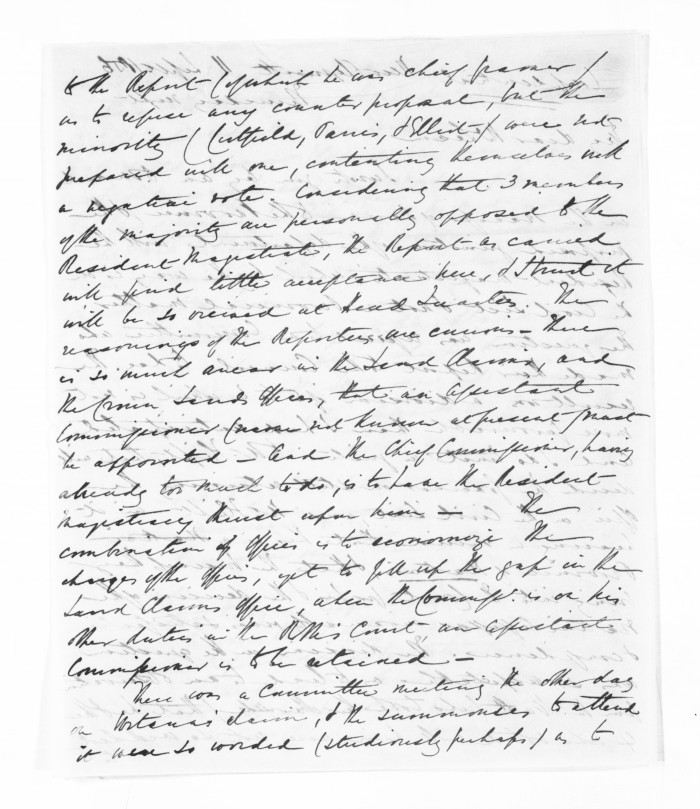 to the Report (of which he was chief framer)
as to refuse any counter proposal, but the
minority (Lutfield, Parris, & Elliot) were not
prepared with one, contenting themselves with
a negative vote. Considering that 3 members
of the majority are personally opposed to the
Resident Magistrate, the Report as carried
will find little acceptance here, & I trust it
will be so received at Head Quarters. The
reasonings of the Reporters are curious - There
is so much arrear in the Land Claims, and
the Crown Lands Offices, that an Assistant
Commissioner (name not known at present) must
be appointed - and the Chief Commissioner, having
already too much to do, is to have the Resident
magistracy thrust upon him - The
combination of offices is to economize the
charges of the offices, yet to fill up the gap in the
Land Claims Office, when the Commissr. is on his
other duties in the RMs Court, an Assistant
Commissioner is to be retained -
There was a Committee meeting the other day
on claim, & the summonses to attend
it were so worded (studiously perhaps) as to